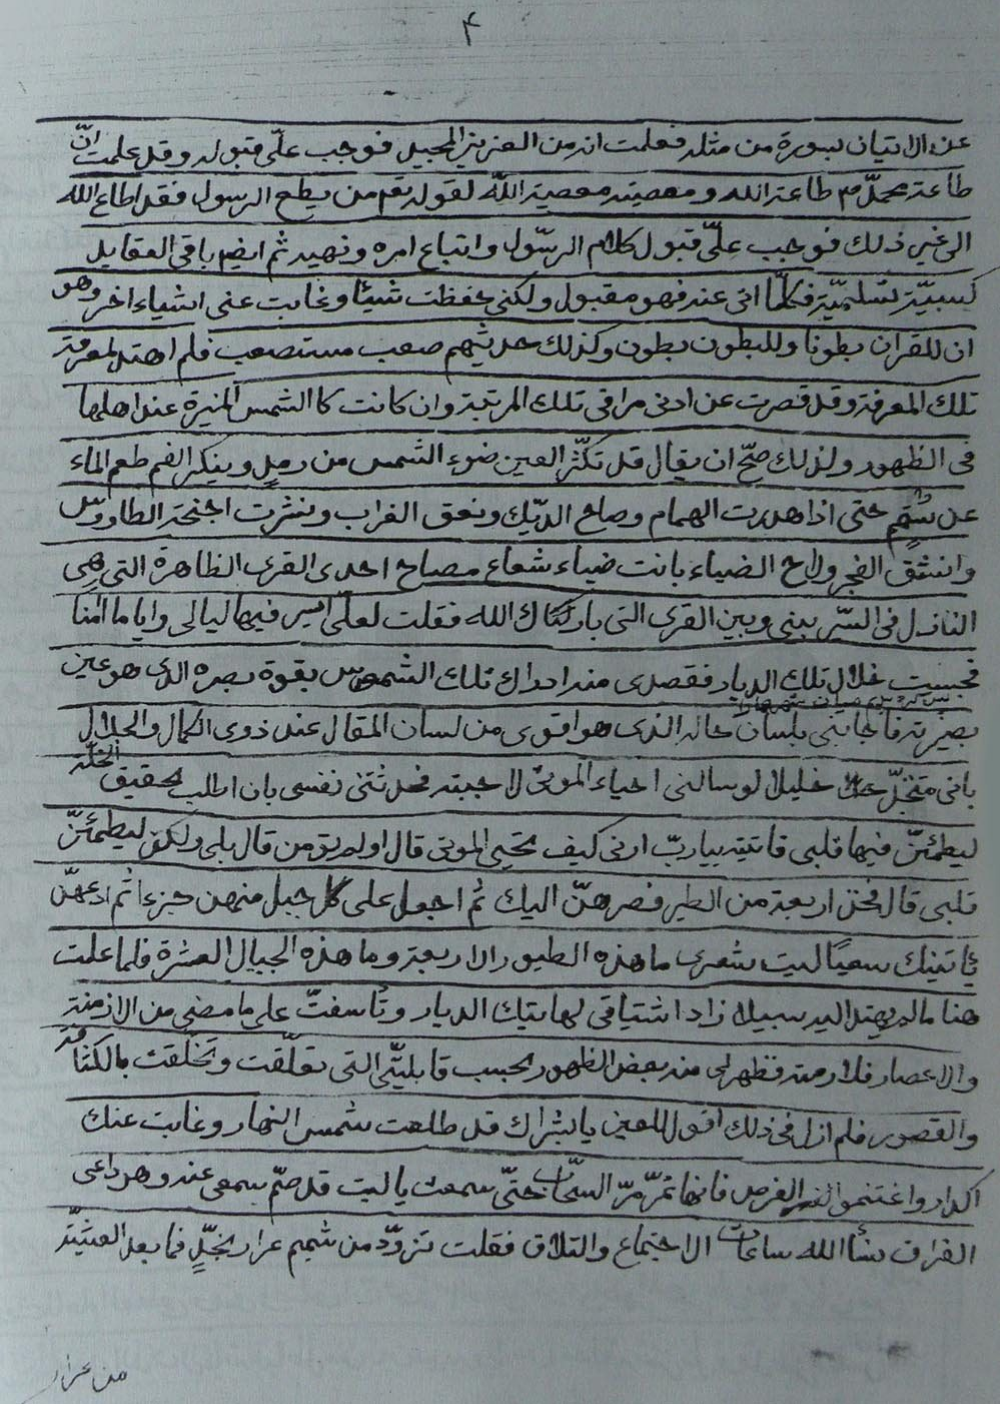 ۴
عن الاتيان بسورة من مثله فعلمت انه من العزيز الجميل فوجب علىّ قبوله وقد علمت انّ
طاعة محمّد ص طاعة الله ومعصيته معصية اللّه لقوله تعم من يطع الرسول فقد اطاع الله
الى غير ذلك فوجب علىّ قبول كلام الرسّول واتباع امره ونهيه ثم ايضم باقى العقايد
كسبيّة تسليميّة فكلّما اتى عنه فهو مقبول ولكنى حفظت شيئًا وغابت عنى اشياء اخر وهو
ان للقران بطونا وللبطون بطون وكذلك حديثهم صعب مستصعب فلم اهتد لمعرفة
تلك المعرفة وقد قصرت عن ادنى مراقى تلك المرتبة وان كانت كا الشمس المنيرة عند اهلها
فى الظهور ولذلك صحّ ان يقال قد تكرّ العين ضوء الشمس من رمدٍ وينكر الفم طعم الماء
عن سُقمٍ حتى اذا هدرت الهمام وصاح الديّك ونعق الغراب ونشرت اجنحة الطاووس
وانشقّ الفجر ولاح الضياء بانت ضياء شعاع مصباح احدى القرى الظاهرة التى هى
النازل فى السّر بينى وبين القرى التى بارك الله فقلت لعلّى اسير فيها ليالى واياما امنا
فجست خلال تلك الديار فقصدى منه ادراك تلك الشموس بقوة بصره الذى هو عين
بصيرته فاجابنى بلسان حاله الذى هو اقوى من لسان المقال عند ذوى الكمال والجلال
بانى متخّذ خليلا لو سالنى احياء الموتى لاجبته فحدثتنى نفسى بان اطلب تحقيق الخلّة
ليطمئنّ فيها قلبى فاتيته بيا ربّ ارنى كيف تحيى الموتى قال اولم تؤمن قال بلى ولكن ليطمئنّ
قلبى قال فخذ اربعة من الطير فصرهنّ اليك ثم اجعل على كل جبل منهن جزءا ثم ادعهنّ
يأتينك سعيًا ليت شعرى ما هذه الطيور الاربعة وما هذه الجبال العشرة فلما علمت
هنا ما لم يهتد اليه سبيلا زاد اشتياقى لهاتيك الديار وتأسفتّ على ما مضى من الازمنة
والاعصار فلازمته فظهر لى منه بعض الظهور بحسب قابليتّى التى تعلّقت وتخلّقت بالكثافة
والقصور فلم ازل فى ذلك اقول للعين يا بشراك قد طلعت شمس النهار وغابت عنك
اكدار واغتنموا الفرص فانها تمرّ مرّ السحّاب حتّى سمعت يا ليت قد صّم سمعى عنه وهو داعى
الفراق نسأ الله ساعات الاجتماع والتلاق فقلت تزوّد من شميم عرار نجدٍ فما بعد العشيّة
من عرار